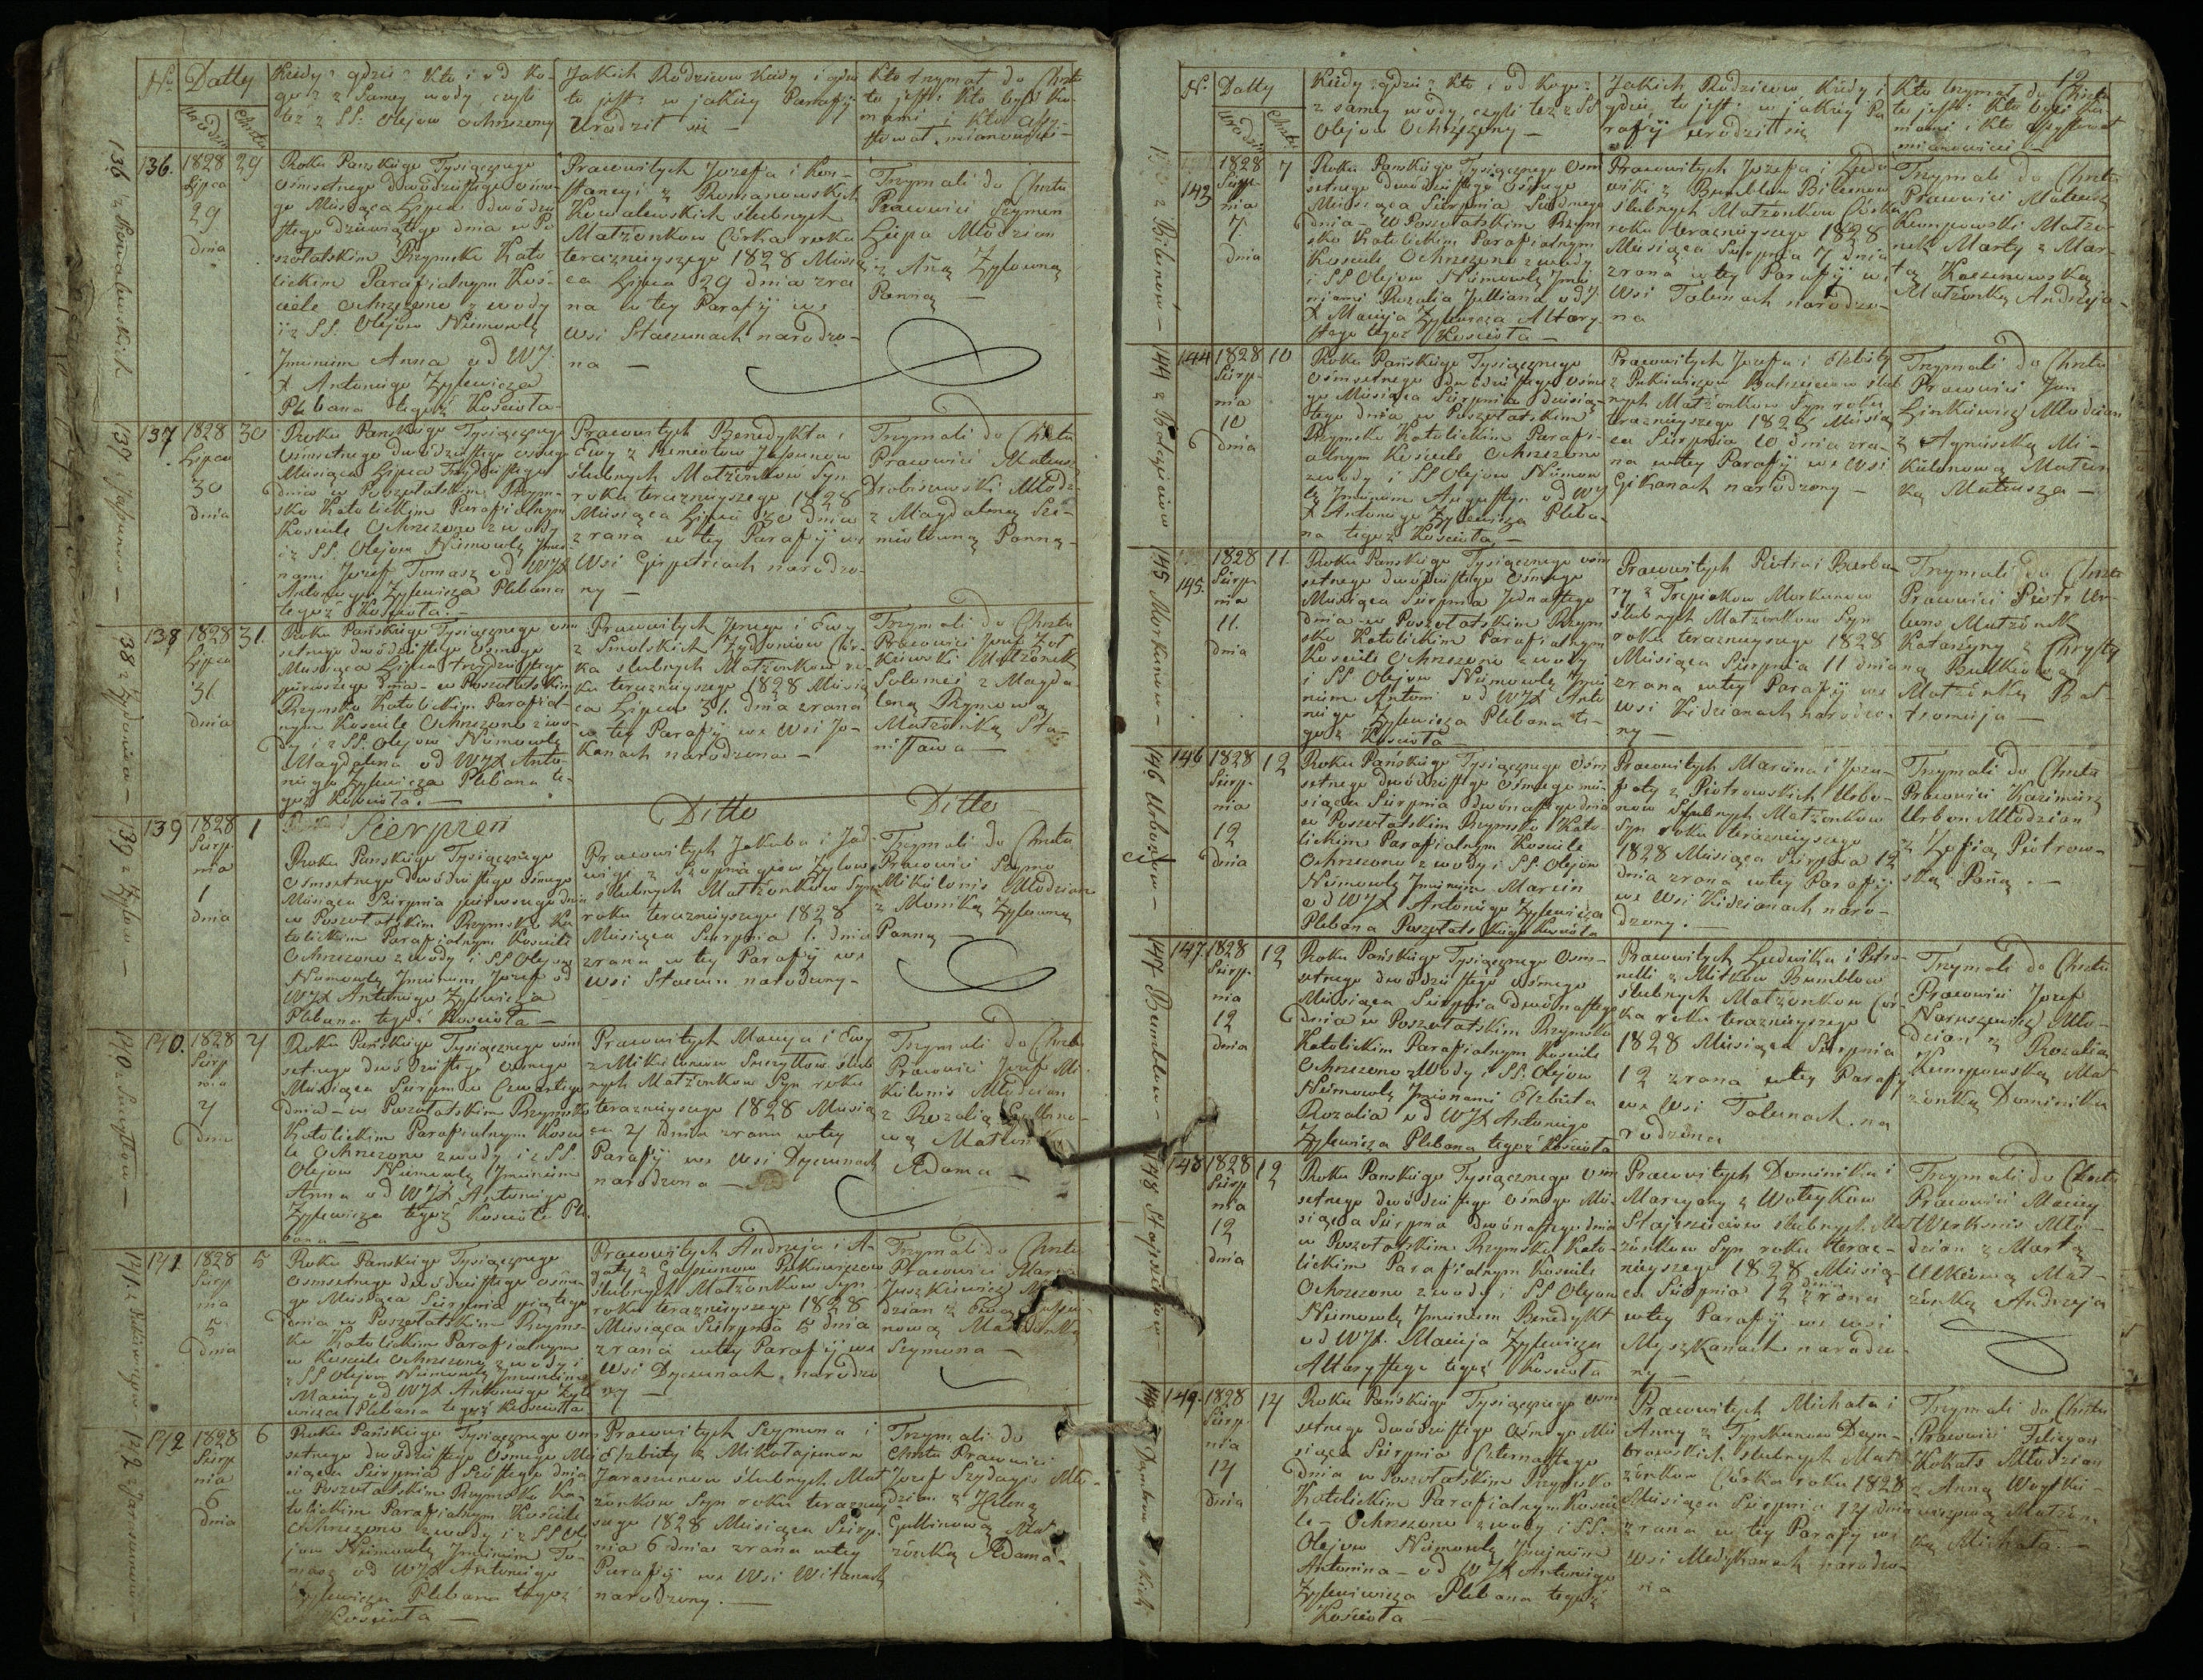 No Datty
Urodzin Chrztu
Kiedy? gdzie? Kto i od ko-
go? z Samey wody, czyli
też z SS. Olejow ochrzczony
Jakich Rodzicow Kiedy i gdzie
to jest: w jakiey Parafij
Urodził się —
Kto trzymał do Chrztu
to jest: Kto byli Ku-
mami i Kto assy-
stował, mianowicie —
136.
1828
Lipca
29
dnia
29
Roku Panskiego Tysiącznego
Osmsetnego dwódziestego osme-
go Miesiąca Lipca dwódzie
stego dziewiątego dnia w Po
szołatskim Rzymsko Kato
lickim Parafialnym Koś-
ciele Ochrzczono z wody
i z SS. Olejow Niemowlę
Imieniem Anna od WJ
X Antoniego Żylewicza
Plebana tegoż Kościoła-
Pracowitych Jozefa i Kon-
stancyi z Romanowskich
Kowalewskich slubnych
Matżonkow Córka roku
terazniejszego 1828 Miesią
ca Lipca 29 dnia zra
na w tey Parafij we
wsi Staczunach narodzo-
na —
Trzymali do Chrztu
Pracowici Szymon
Liepa Młodzian
z Anną Żyłowną
Panną —
137
1828
Lipca
30
dnia
30
Roku Panskiego Tysiącznego
Osmsetnego dwódziestego osmego
Miesiąca Lipca Trzydziestego
dnia w Poszołatskim Rzym-
sko Katolickim Parafialnym
Kościele Ochrzczono z wody
i z SS. Olejow Niemowlę Imio-
nami Jozef Tomasz od WJX
Antoniego Żylewicza Plebana
tegoż Kościoła. —
Pracowitych Benedykta i
Ewy z Slubnych Matżonkow Syn
roku terazniejszego 1828
Miesiąca Lipca 30 dnia
z rana w tey Parafij we
Wsi narodzo-
ny —
Trzymali do Chrztu
Pracowici Mateusz
Drobiszewski Młodz-
z Magdaleną
Panną-
138
1828
Lipca
31
dnia
31.
Roku Pańskiego Tysiącznego osm
setnego dwódziestego Osmego
Miesiąca Lipca trzydziestego
pierwszego dnia - w Poszołatskim
Rzymsko Katolickim Parafial-
nym Kosciele Ochrzczono z wo-
dy i z SS. Olejow Niemowlę
Magdalena od WJX Anto-
niego Żylewicza Plebana te-
goż Kościoła. —
Pracowitych i Ewy
z Smolskich Żydoniow Cór-
ka slubnych Matżonkow ro
ku terazniejszego 1828 Miesią
ca Lipca 31. dnia z rana
w tey Parafij we Wsi Jo-
kanach narodzona —
Trzymali do Chrztu
Pracowici Jozef Żoł
kiewski Matżonek
Solomei z Magda
leną Rzymową
Matżonką Sta-
nisława —
Sierpień
Ditto
Ditto
139
1828
Sierp-
nia
1
dnia
1
Roku Panskiego Tysiącznego
Osmsetnego dwódziestego ósmego
Miesiąca Sierpnia pierwszego dnia
w Poszołatskim Rzymsko Ka
tolickim Parafialnym Kościele
Ochrzczono z wody i SS Olejow
Niemowlę Imieniem Jozef od
WJX Antoniego Żylewicza
Plebana tegoż Kościoła —
Pracowitych Jakuba i Jad-
wigi z Żyłow
slubnych Matżonkow Syn
roku terazniejszego 1828
Miesiąca Sierpnia 1. dnia
z rana w tey Parafij we
wsi Staczun narodzony-
Trzymali do Chrztu
Pracowici Szymo
Mikulonis Młodzian
z Moniką Żyłowną
Panną —
140.
1828
Sierp
nia
4
dnia
4
Roku Pańskiego Tysiącznego osm
setnego dwódziestego Osmego
Miesiąca Sierpnia Czwartego
dnia - w Poszołatskim Rzymsko
Katolickim Parafialnym Koscie
le Ochrzczono z wody i z SS
Olejow Niemowlę Imieniem
Anna od WJX Antoniego
Żylewicza tegoż Kościoła Ple
bana —
Pracowitych Macieja i Ewy
z Mikulonow Szczytłow slub
nych Matżonkow Syn roku
terazniejszego 1828 Miesią
ca 4 dnia z rana w tey
Parafij we Wsi Dyczunach
narodzona —
Trzymali do Chrztu
Pracowici Jozef Mi-
kulonis Młodzian
z Rozalią
wą Matżonką
Adama —
141
1828
Sierp
nia
5
dnia
5
Roku Panskiego Tysiącznego
Osmsetnego dwódziestego ósme-
go Miesiąca Sierpnia piątego
dnia w Poszołatskim Rzyms-
ko Katolickim Parafialnym
w Kosciele Ochrzczony z wody i
z SS Olejow Niemowlę Imieniem
Maciey od WJX Antoniego Żyle
wicza Plebana tegoż Kościoła
Pracowitych Andrzeja i A-
gaty z Gasiunow Pukiewiczow
slubnych Matżonkow Syn
roku terazniejszego 1828
Miesiąca Sierpnia 5 dnia
z rana w tey Parafij we
Wsi Dyczunach narodzo
ny —
Trzymali do Chrztu
Pracowici Marcin
Juszkiewicz Mło-
dzian z Ewą
nową Matżonką
Szymona —
142
1828
Sierp
nia
6
dnia
6
Roku Pańskiego Tysiącznego Osm
setnego dwodziestego Osmego Mie
siąca Sierpnia Szóstego dnia
w Poszołatskim Rzymsko Ka-
tolickim Parafialnym Kościele
Ochrzczono z wody i z SS Ole
jow Niemowlę Imieniem To-
masz od WJX Antoniego
Żylewicza Plebana tegoż
Kościoła —
Pracowitych Szymona i
Elzbiety z Mikołajunow
Jaraszunow slubnych Mat
żonkow Syn roku terazniey
szego 1828 Miesiąca Sierp-
nia 6 dnia z rana w tey
Parafij we Wsi Witanach
narodzony. —
Trzymali do
Chrztu Pracowici
Jozef Szydagis Mło-
dzian z Heleną
Gulbinową Mat
żonką Adama-
136 z Kowalewskich
137 z Jasiunow —
138 z Żydoniow —
139 z Żyłow —
140 z Szczytłow —
141 z Pukiewiczow
142 z Jaraszunow —
12
N. Datty
Urodzin Chrztu
Kiedy? gdzie? Kto i od Kogo?
z samey wody czyli też z SS
Olejow Ochrzczony —
Jakich Rodzicow Kiedy i
gdzie to jest: w jakiey Pa
rafij urodził się
Kto trzymał do Chrztu
to jest: Kto byli Ku
mami i Kto assystował
mianowicie —
143
1828
Sierp-
nia
7
dnia
7
Roku Panskiego Tysiącznego Osm
setnego dwodziestego Osmego
Miesiąca Sierpnia Siódmego
dnia - w Poszołatskim Rzym
sko Katolickim Parafialnym
Kosciele Ochrzczono z wody
i SS Olejow Niemowlę Imio
niami Rozalia Julianna od J
X Macieja Żylewicza Altary-
stego tegoż Kościoła —
Pracowitych Jozefa i Ludo
wiki z Bumblow Bilunow
slubnych Matżonkow Córka
roku terazniejszego 1828
Miesiąca Sierpnia 7 dnia
z rana w tey Parafij we
Wsi Tolunach narodzo-
na
Trzymali do Chrztu
Pracowici Mateusz
Kumpowski Matżo-
nek Marty z Mar-
tą Kaczanowską
Matżonką Andrzeja-
144
1828
Sierp-
nia
10
dnia
10
Roku Pańskiego Tysiącznego
Ośmsetnego dwódziestego ósme
go Miesiąca Sierpnia dziesią-
tego dnia w Poszołatskim
Rzymsko Katolickim Parafi-
alnym Kościele Ochrzczono
z wody i SS Olejow Niemow
lę Imieniem Augustyn od WJ
X Antoniego Żylewicza Pleba-
na tegoż Kościoła —
Pracowitych Jozefa i Elzbiety
z Pukiewiczow slub
nych Matżonkow Syn roku
terazniejszego 1828 Miesią
ca Sierpnia 10 dnia zra-
na w tey Parafij we Wsi
Gikanach narodzony —
Trzymali do Chrztu
Pracowici Jan
Linkiewicz Młodzian
z Agnieszką Mi-
kulonową Matżon
ką Mateusza —
145.
1828
Sierp-
nia
11.
dnia
11
Roku Panskiego Tysiącznego osm
setnego dwódziestego Osmego
Miesiąca Sierpnia Jednastego
dnia - w Poszołatskim Rzym
sko Katolickim Parafialnym
Kosciele Ochrzczono z wody
i SS Olejow Niemowlę Imie
niem Antoni od WJX Anto
niego Żylewicza Plebana te-
goż Kościoła —
Pracowitych Piotra i Barba
ry z Trepiekow Morkunow
slubnych Matżonkow Syn
roku terazniejszego 1828
Miesiąca Sierpnia 11 dnia
z rana w tey Parafij we
wsi Kidzianach narodzo-
ny —
Trzymali do Chrztu
Pracowici Piotr Ur-
bons Matżonek
Katarzyny z Chrysty
ną Butkiową
Matżonką Bał
tromieja —
146
1828
Sierp-
nia
12
dnia
12
Roku Pańskiego Tysiącznego Osm
setnego dwódziestego Osmego mie-
siąca Sierpnia dwónastego dnia
w Poszołatskim Rzymsko Kato-
lickim Parafialnym Kościele
Ochrzczono z wody i SS. Olejow
Niemowlę Imieniem Marcin
od WJX Antoniego Żylewicza
Plebana Poszołatskiego Kościoła
Pracowitych Marcina i Joza-
faty z Piotrowskich Urbo-
now Slubnych Matżonkow
Syn roku terazniejszego
1828 Miesiąca Sierpnia 12
dnia z rana w tey Parafij
we Wsi Kidzianach naro-
dzony. —
Trzymali do Chrztu
Pracowici Kazimierz
Urbon Młodzian
z Zofią Piotrow-
ską Paną. —
147
1828
Sierp-
nia
12
dnia
12
Roku Pańskiego Tysiącznego Osm-
setnego dwódziestego ósmego
Miesiąca Sierpnia dwónastego
dnia w Poszołatskim Rzymsko
Katolickim Parafialnym Kosciele
Ochrzczono z Wody i SS. Olejow
Niemowlę Imionami Elzbieta
Rozalia od WJX Antoniego
Żylewicza Plebana tegoż Kościoła
Pracowitych Ludwika i Petro-
nelli z Mitkow Bumblow
slubnych Matżonkow Cór-
ka roku terazniejszego
1828 Miesiąca Sierpnia
12 z rana w tey Parafij
we Wsi Tolunach na
rodzona
Trzymali do Chrztu
Pracowici Jozef
Naruszewicz Mło-
dzian z Rozalią
Kumpowską Mat
żonką Dominika
148
1828
Sierp
nia
12
dnia
12
Roku Panskiego Tysiącznego Osm
setnego dwódziestego Osmego Mie-
siąca Sierpnia dwónastego dnia
w Poszołatskim Rzymsko Kato-
lickim Parafialnym Kosciele
Ochrzczono z wody i SS Olejow
Niemowlę Imieniem Benedykt
od WJX. Macieja Żylewicza
Altarystego tegoż Kościoła
Pracowitych Dominika i
Maryany z Wołeykow
slubnych Mat
żonkow Syn roku teraz-
niejszego 1828 Miesią-
ca Sierpnia 12 dnia z rana
w tey Parafij we wsi
Myszkanach narodzo-
ny —
Trzymali do Chrztu
Pracowici Maciey
Mło-
dzian z Martą
Mat-
żonką Andrzeja
149.
1828
Sierp-
nia
14
dnia
14
Roku Pańskiego Tysiącznego osm
setnego dwódziestego Osmego Mie
siąca Sierpnia Czternastego
dnia w Poszołatskim Rzymsko
Katolickim Parafialnym Koście
le - Ochrzczono z wody i SS.
Olejow Niemowlę Imieniem
Antonina - od WJX Antoniego
Żylewicza Plebana tegoż
Kościoła —
Pracowitych Michała i
Anny z Tynkunow Dom-
browskich slubnych Mat
żonkow Córka roku 1828
Miesiąca Sierpnia 14 dnia
z rana w tey Parafij we
wsi Medykonach narodzo-
na
Trzymali do Chrztu
Pracowici Felicyan
Kokats Młodzian
z Anną Woytkie-
wiczową Matżon-
ką Michała. —
z Bilunow —
144 z
145 Morkunow —
146 Urbonow —
147 Bumblow —
148
149 z Dombrowskich